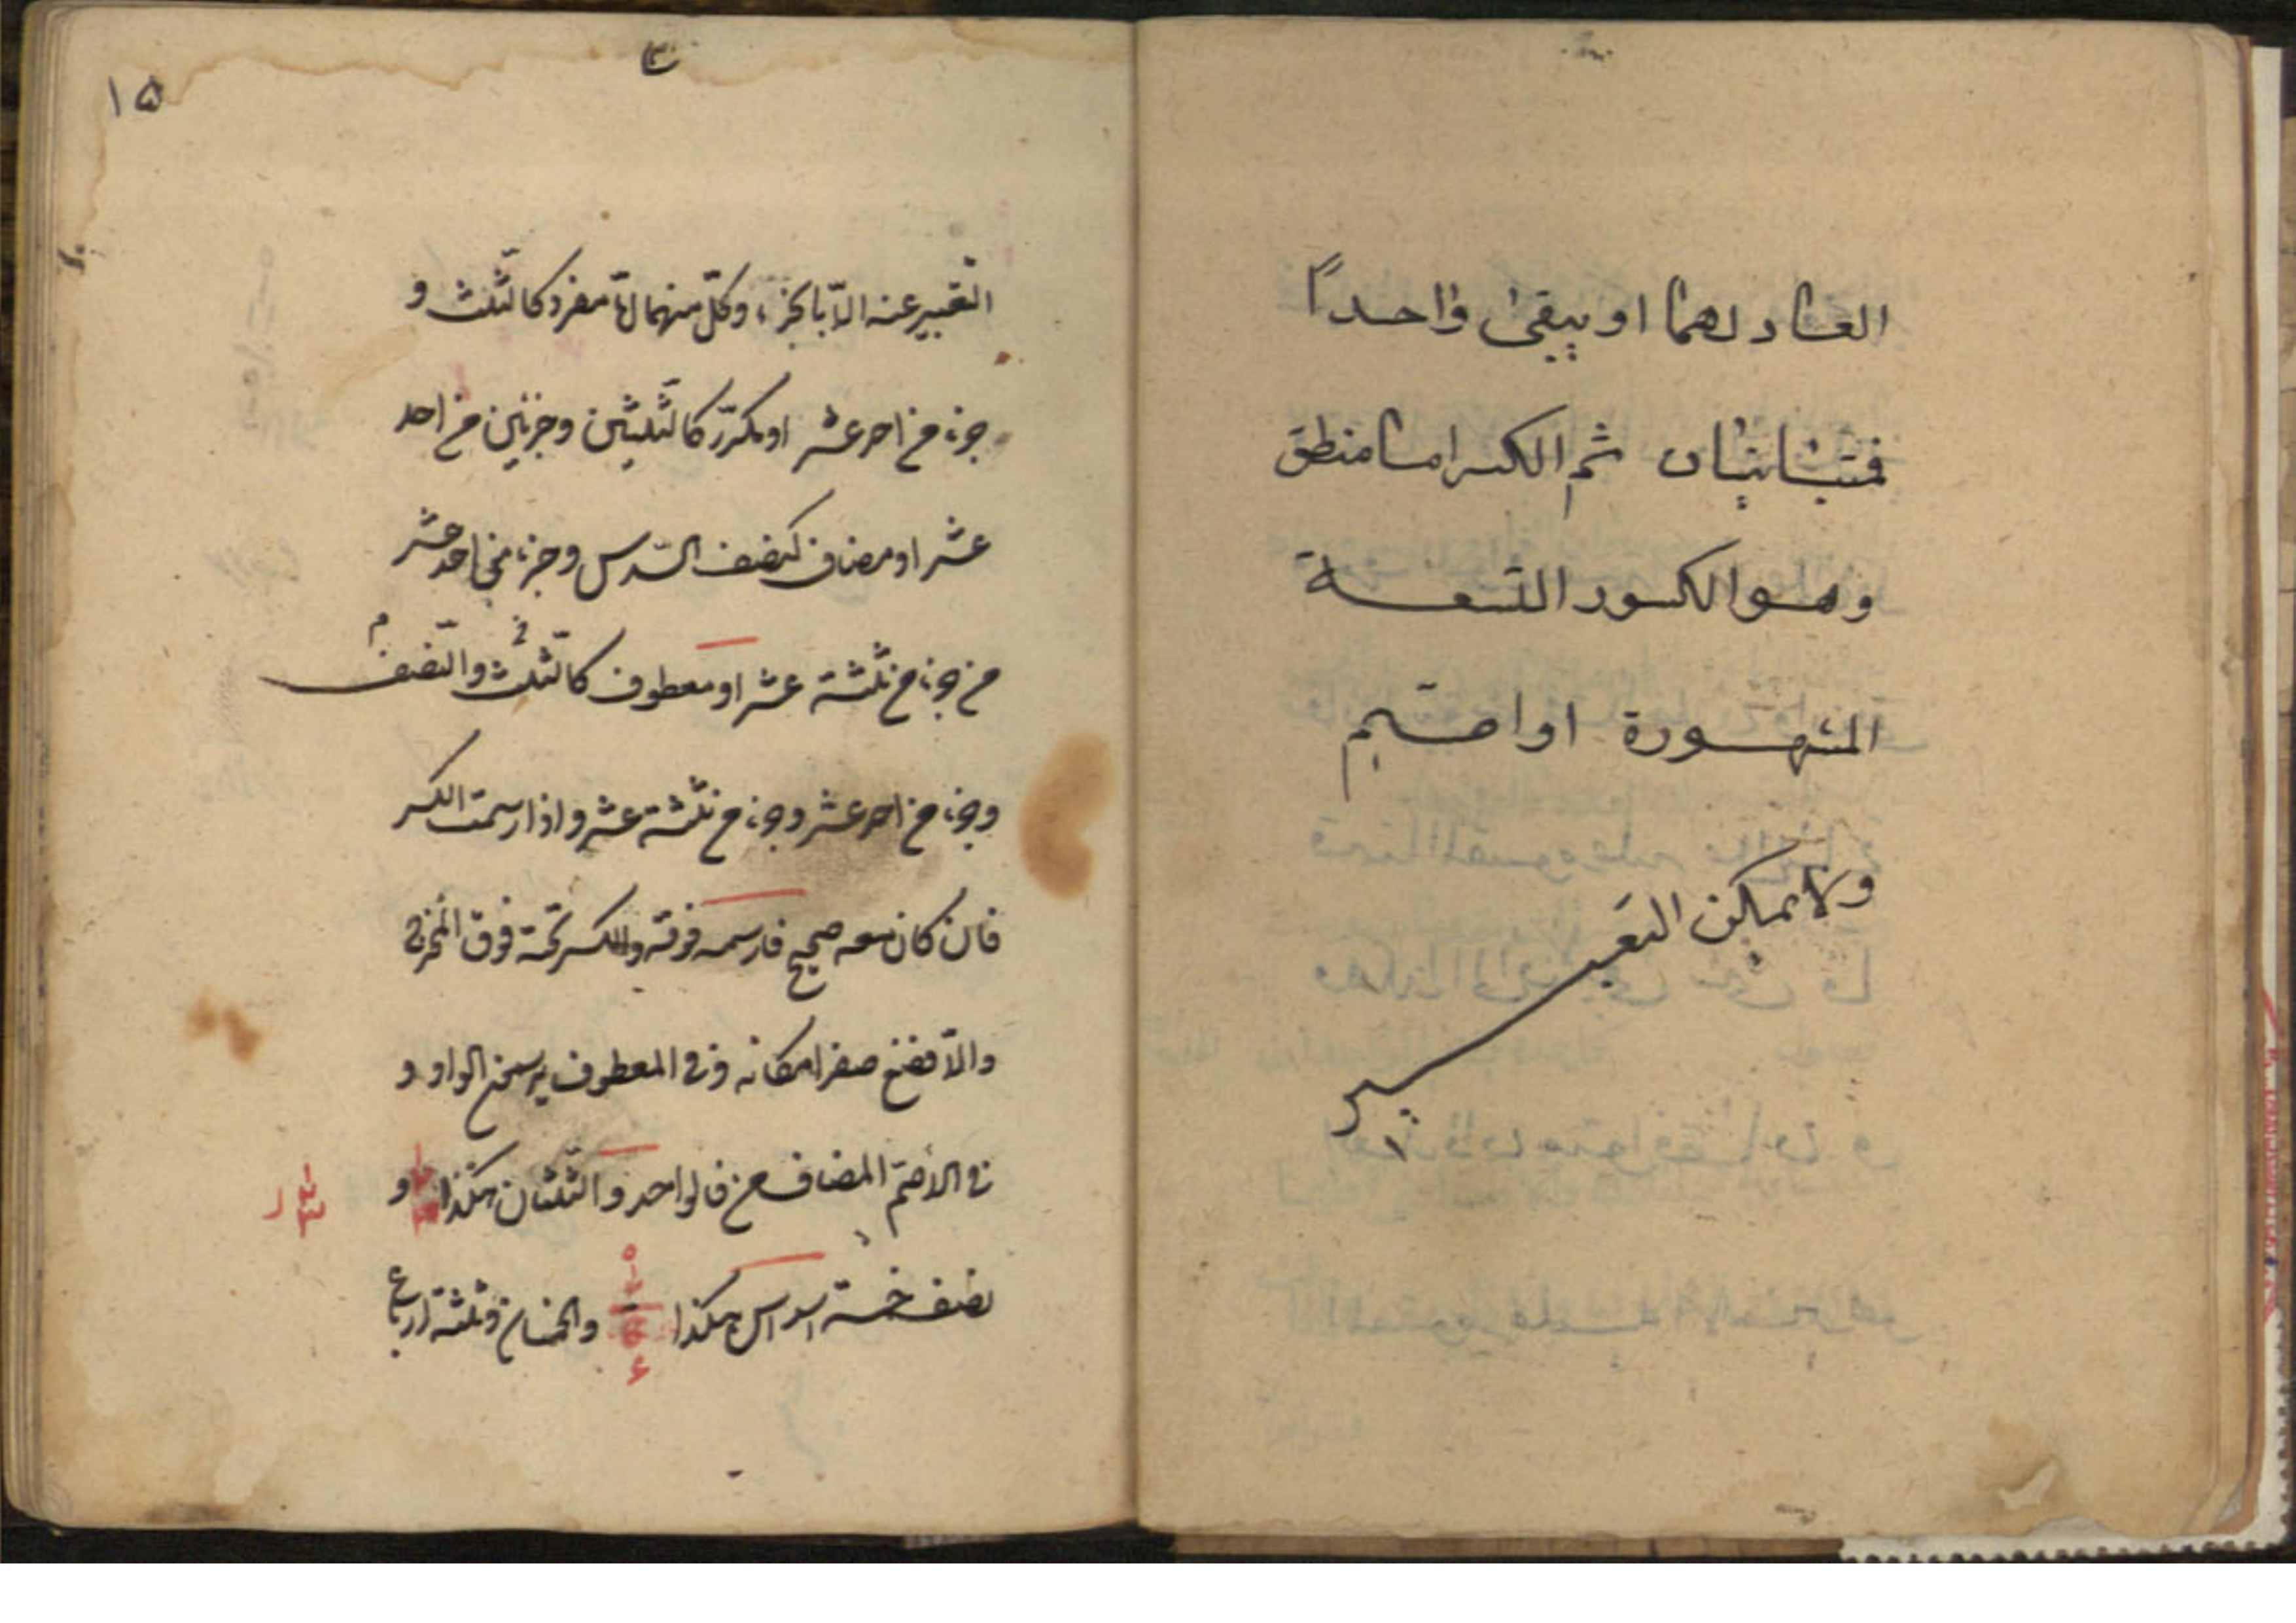 العاد لهما او يبقى واحداً
فمتباينان ثم الكسر اما منطق
وهو الكسور التسعة
المشهورة او اصم
ولا يمكن التعبير
١٥
التعبير عنه الّا بالجزء وكلّ منهما امّا مفرد كالثّلث و
جزء من احد عشر او مكرّر كالثلثين وجزئين من احد
عشر او مضاف كنصف السّدس وجزء من احد عشر
من جزء من ثلثة عشر او معطوف كالثّلث والنّصف
وجزء من احد عشر وجزء من ثلثة عشر واذا رسمت الكسر
فان كان معه صحيح فارسمه فوقه والكسر تحته فوق المخرج
والّا فضع صفرا مكانه وفى المعطوف يرسم الواو و
فى الأصمّ المضاف من فالواحد والثّلثان هكذا و
نصف خمسة اسداس هكذا والخمسان وثلثة ارباع